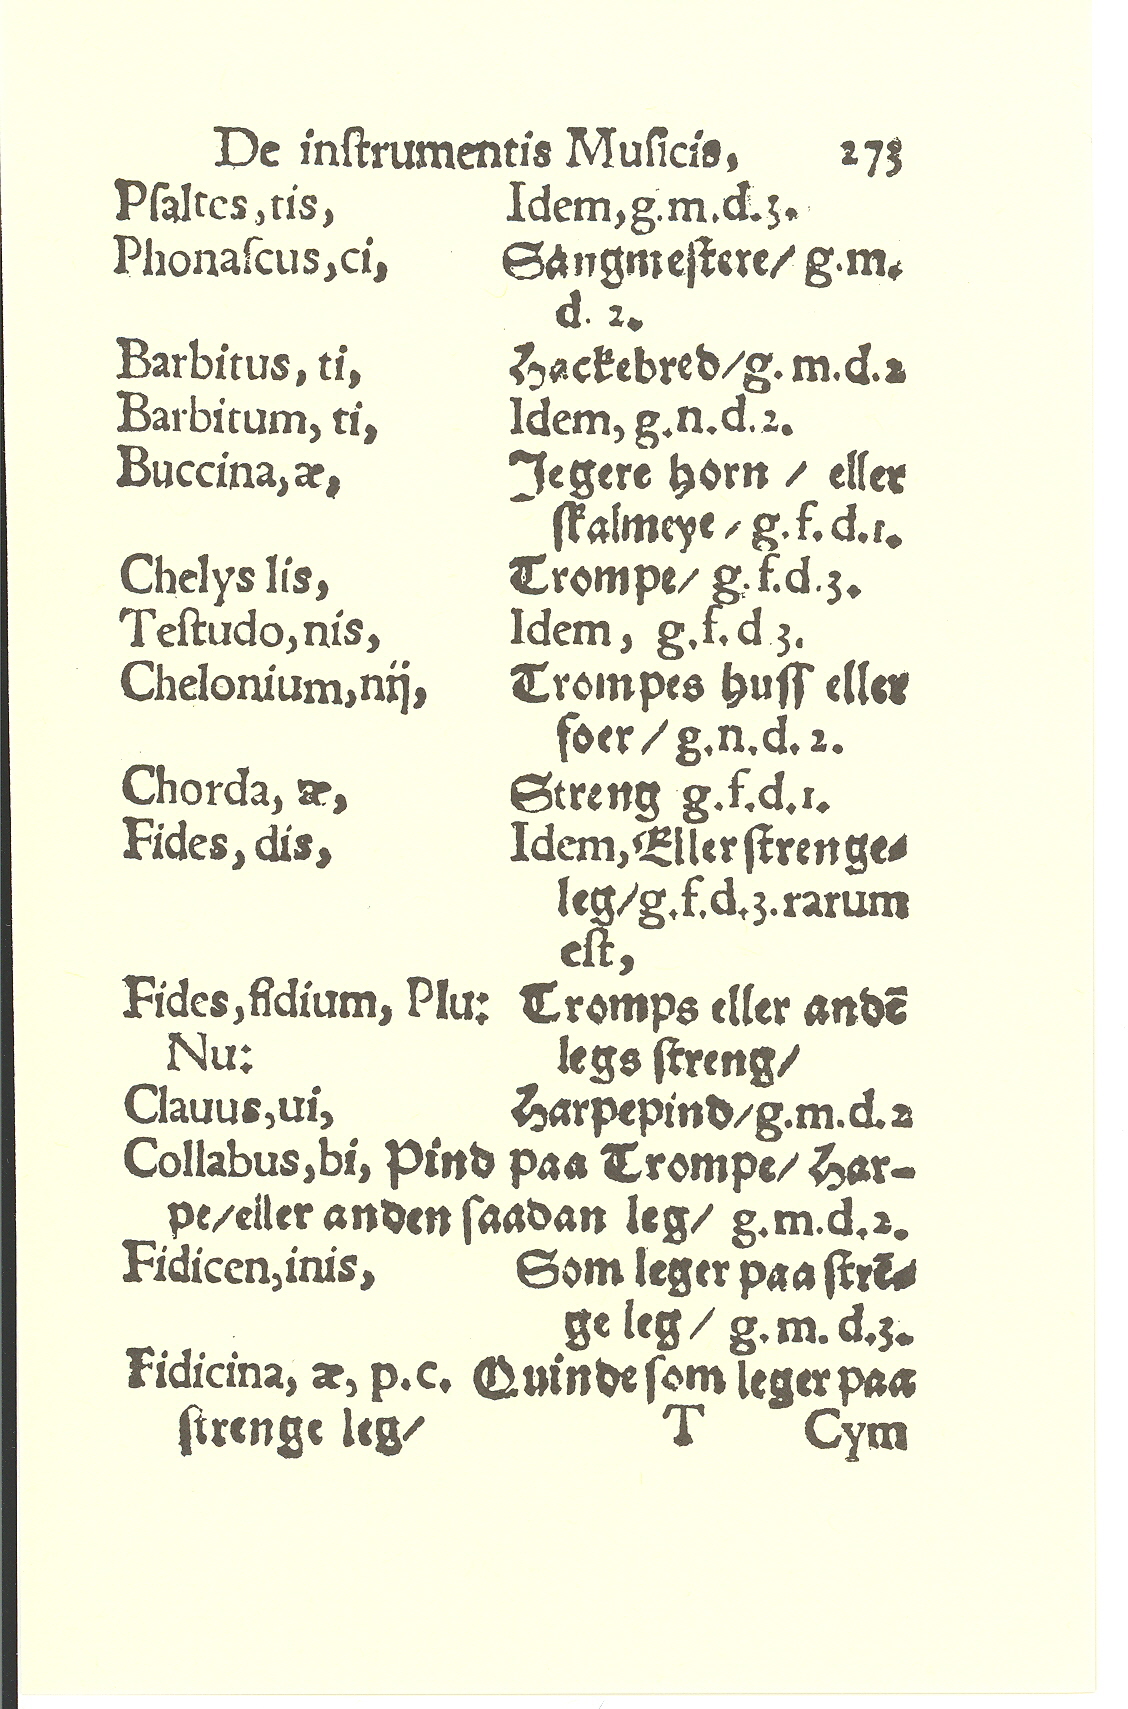 De inſtrumentis Muſicis, 273
Pſaltes, tis, Idem, g.m.d.3.
Phonaſcus, ci, Sangmeſtere/ g.m.
d. 2.
Barbitus, ti, Hackebred/g. m.d.2
Barbitum, ti, Idem, g.n.d.2.
Buccina, æ, Jegere horn / eller
ſkalmeye / g.f.d.1.
Chelys lis, Trompe/ g.f.d.3.
Teſtudo, nis, Idem, g.f.d 3.
Chelonium, nij, Trompes huſſ eller
foer / g.n.d.2.
Chorda, æ, Streng g.f.d.1.
Fides, dis, Idem, Eller ſtrenge⸗
leg/g.f.d.3.rarum
eſt,
Fides, fidium, Plu: Tromps eller andē
Nu: legs ſtreng/
Clauus, ui, Harpepind/g.m.d.2
Collabus, bi, Pind paa Trompe/ Har-
pe/eller anden ſaadan leg/ g.m.d.2.
Fidicen, inis, Som leger paa ſtrē⸗
ge leg / g.m.d.3.
Fidicina, æ, p.c. Quinde ſom leger paa
ſtrenge leg/ T Cym